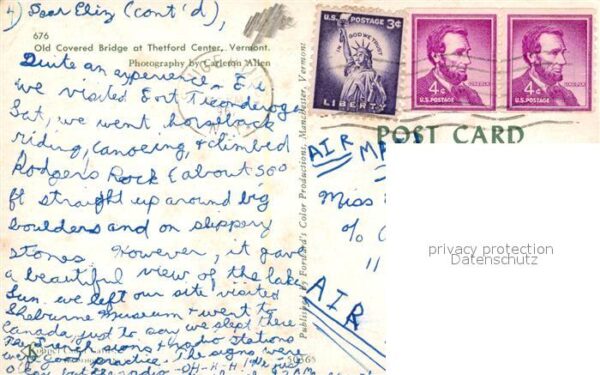 4) Dear Eliz (cont'd),
676
Old Covered Bridge at Thetford Center, Vermont.
Photography by Carleton Allen
Quite an experience. Fri
we visited Fort Ticonderoga
Sat, we went horseback
riding, canoeing, & climbed
Rodgers Rock (about 500
ft straight up around big
boulders and on slippery
stones. However, it gave
a beautiful view of the lake
Sun. we left our site visited
Shelburne Museum & went to
Canada, just to say we slept there
French signs & radio stations
were good practice. The signs were
o.k. but the radio -OH-H-H
50368
Published by Forward's Color Productions, Manchester, Vermont
U.S. POSTAGE 3¢
IN GOD WE TRUST
LIBERTY
4¢
LINCOLN
U.S. POSTAGE
4¢
LINCOLN
U.S. POSTAGE
POST CARD
AIR
Miss
%
11
AIR
privacy protection
Datenschutz